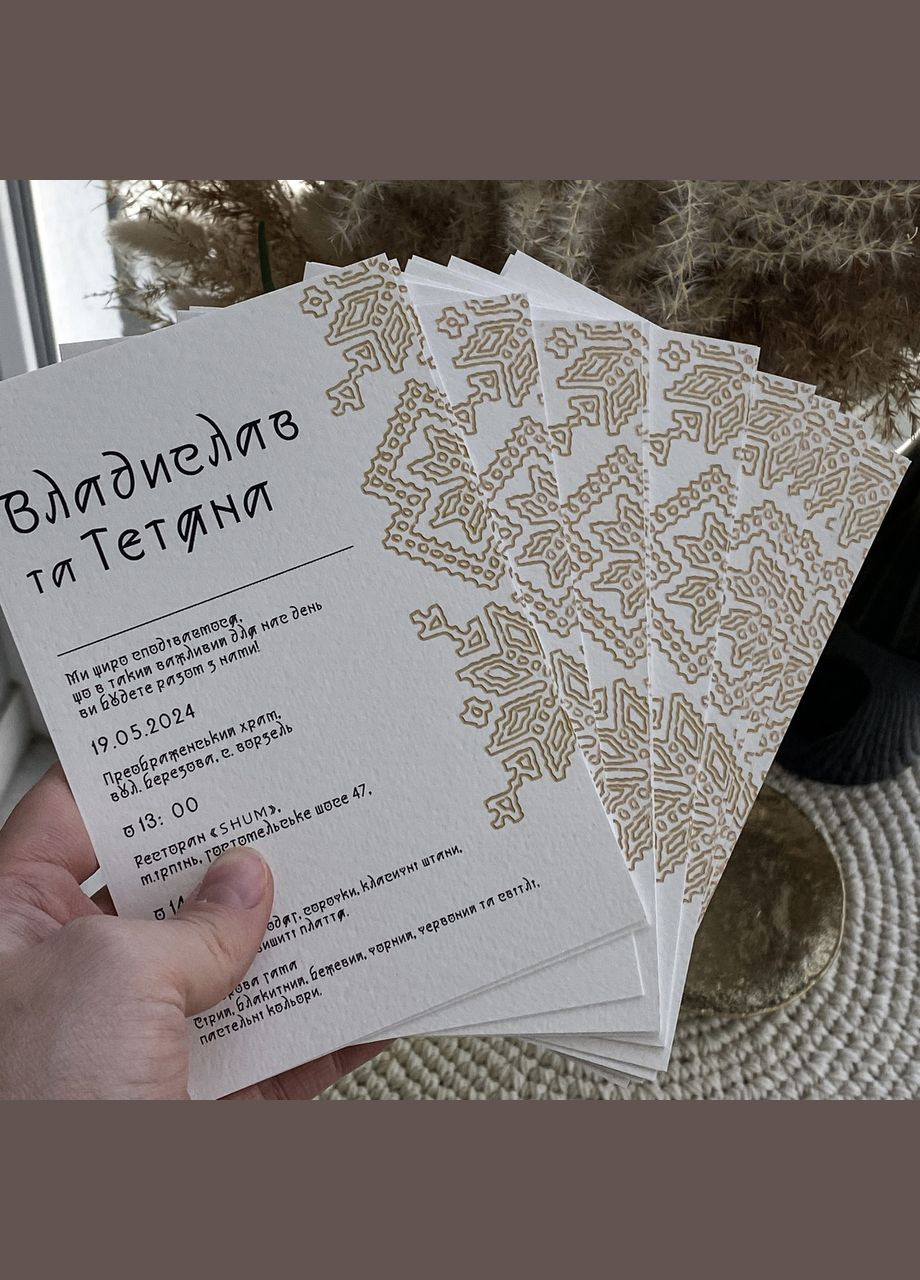 Владислав
та Тетяна
Ми щиро сподіваємося,
що в такий важливий для нас день
ви будете разом з нами!
19.05.2024
Преображенський храм,
вул. Березова, с. Ворзель
о 13: 00
Ресторан «SHUM»,
м.Ірпінь, Гостомельське шосе 47,
о
одяг, сорочки, класичні штани,
вишиті плаття.
гама
Сірий, блакитний, бежевий, чорний, червоний та світлі,
пастельні кольори.